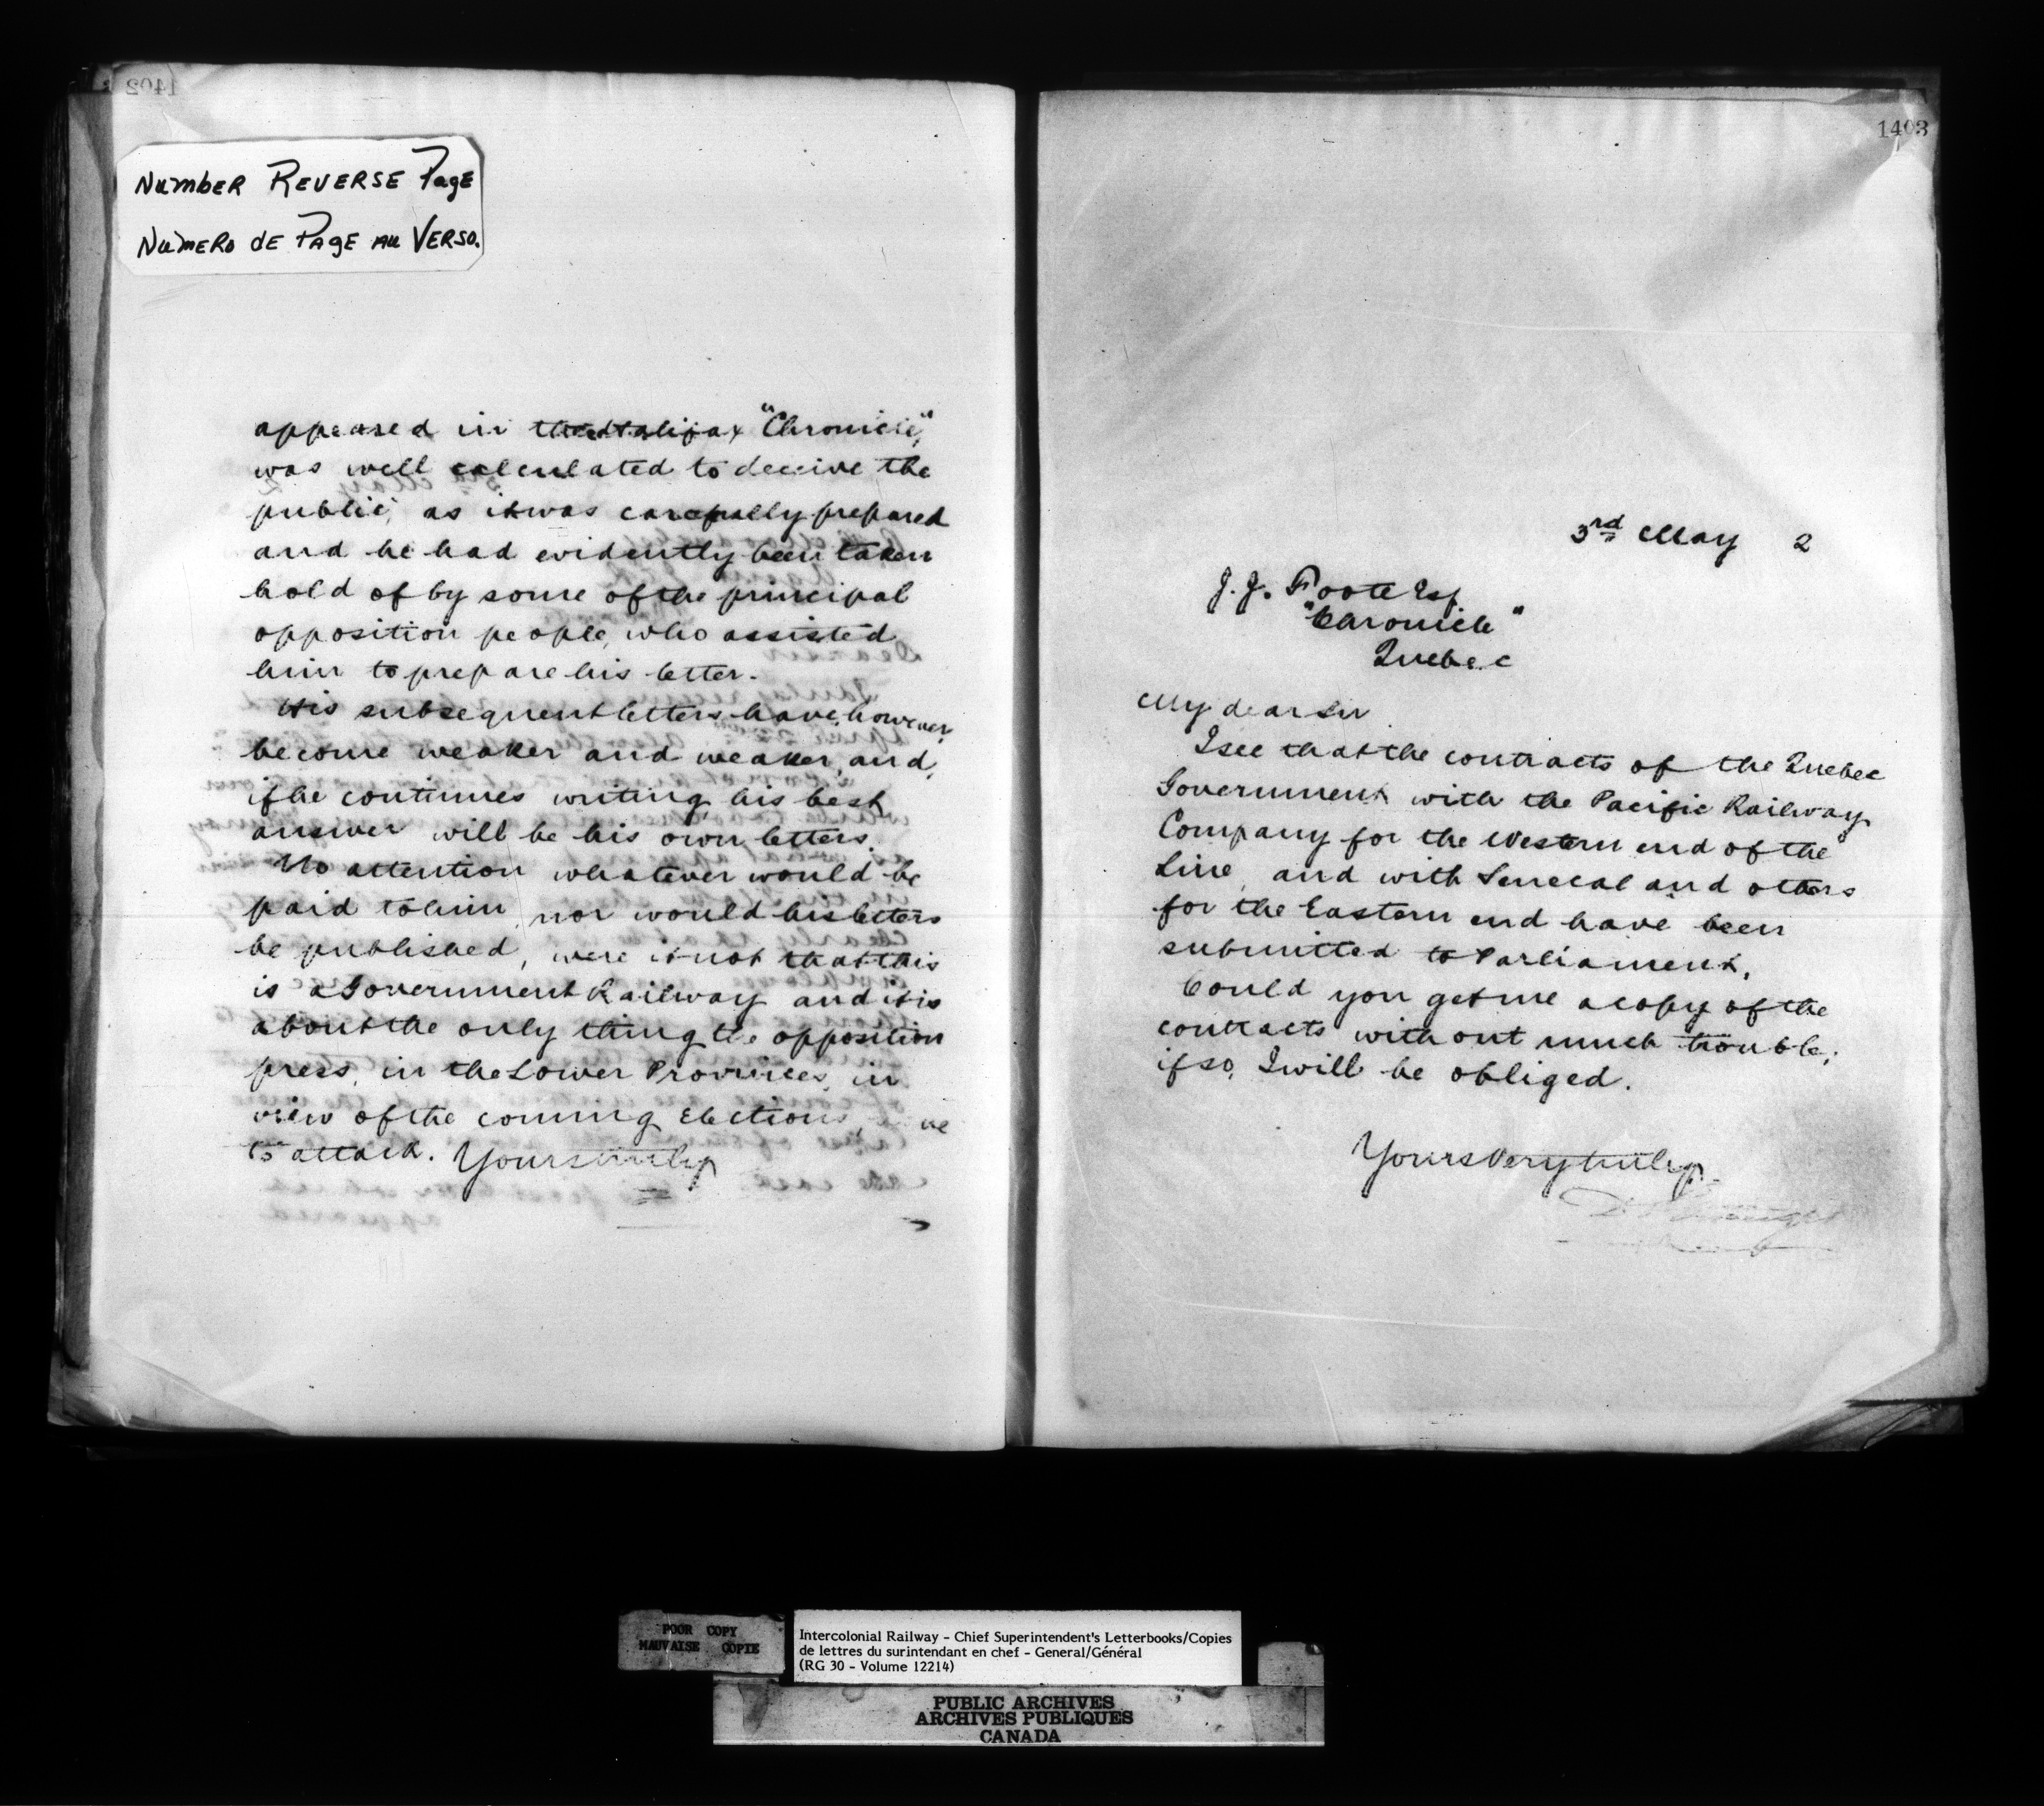 1402
NUMBER REVERSE PAGE
NUMERO DE PAGE AU VERSO.
appeared in the Halifax "Chronicle",
was well calculated to deceive the
public, as it was carefully prepared
and he had evidently been taken
hold of by some of the principal
opposition people, who assisted
him to prepare his letter.
His subsequent letters have, however,
become weaker and weaker, and,
if he continues writing, his best
answer will be his own letters.
No attention whatever would be
paid to him, nor would his letters
be published, were it not that this
is a Government Railway and it is
about the only thing the opposition
press, in the Lower Provinces, in
view of the coming Elections,
to attack. Yours truly
1403
3rd May 2
J. J. Foote Esq
"Chronicle"
Quebec
My dear Sir
I see that the contracts of the Quebec
Government with the Pacific Railway
Company for the Western end of the
Line, and with Senecal and others
for the Eastern end have been
submitted to Parliament.
Could you get me a copy of the
contracts without much trouble;
if so, I will be obliged.
Yours very truly
POOR COPY
MAUVAISE COPIE
Intercolonial Railway – Chief Superintendent's Letterbooks/Copies
de lettres du surintendant en chef – General/Général
(RG 30 – Volume 12214)
PUBLIC ARCHIVES
ARCHIVES PUBLIQUES
CANADA